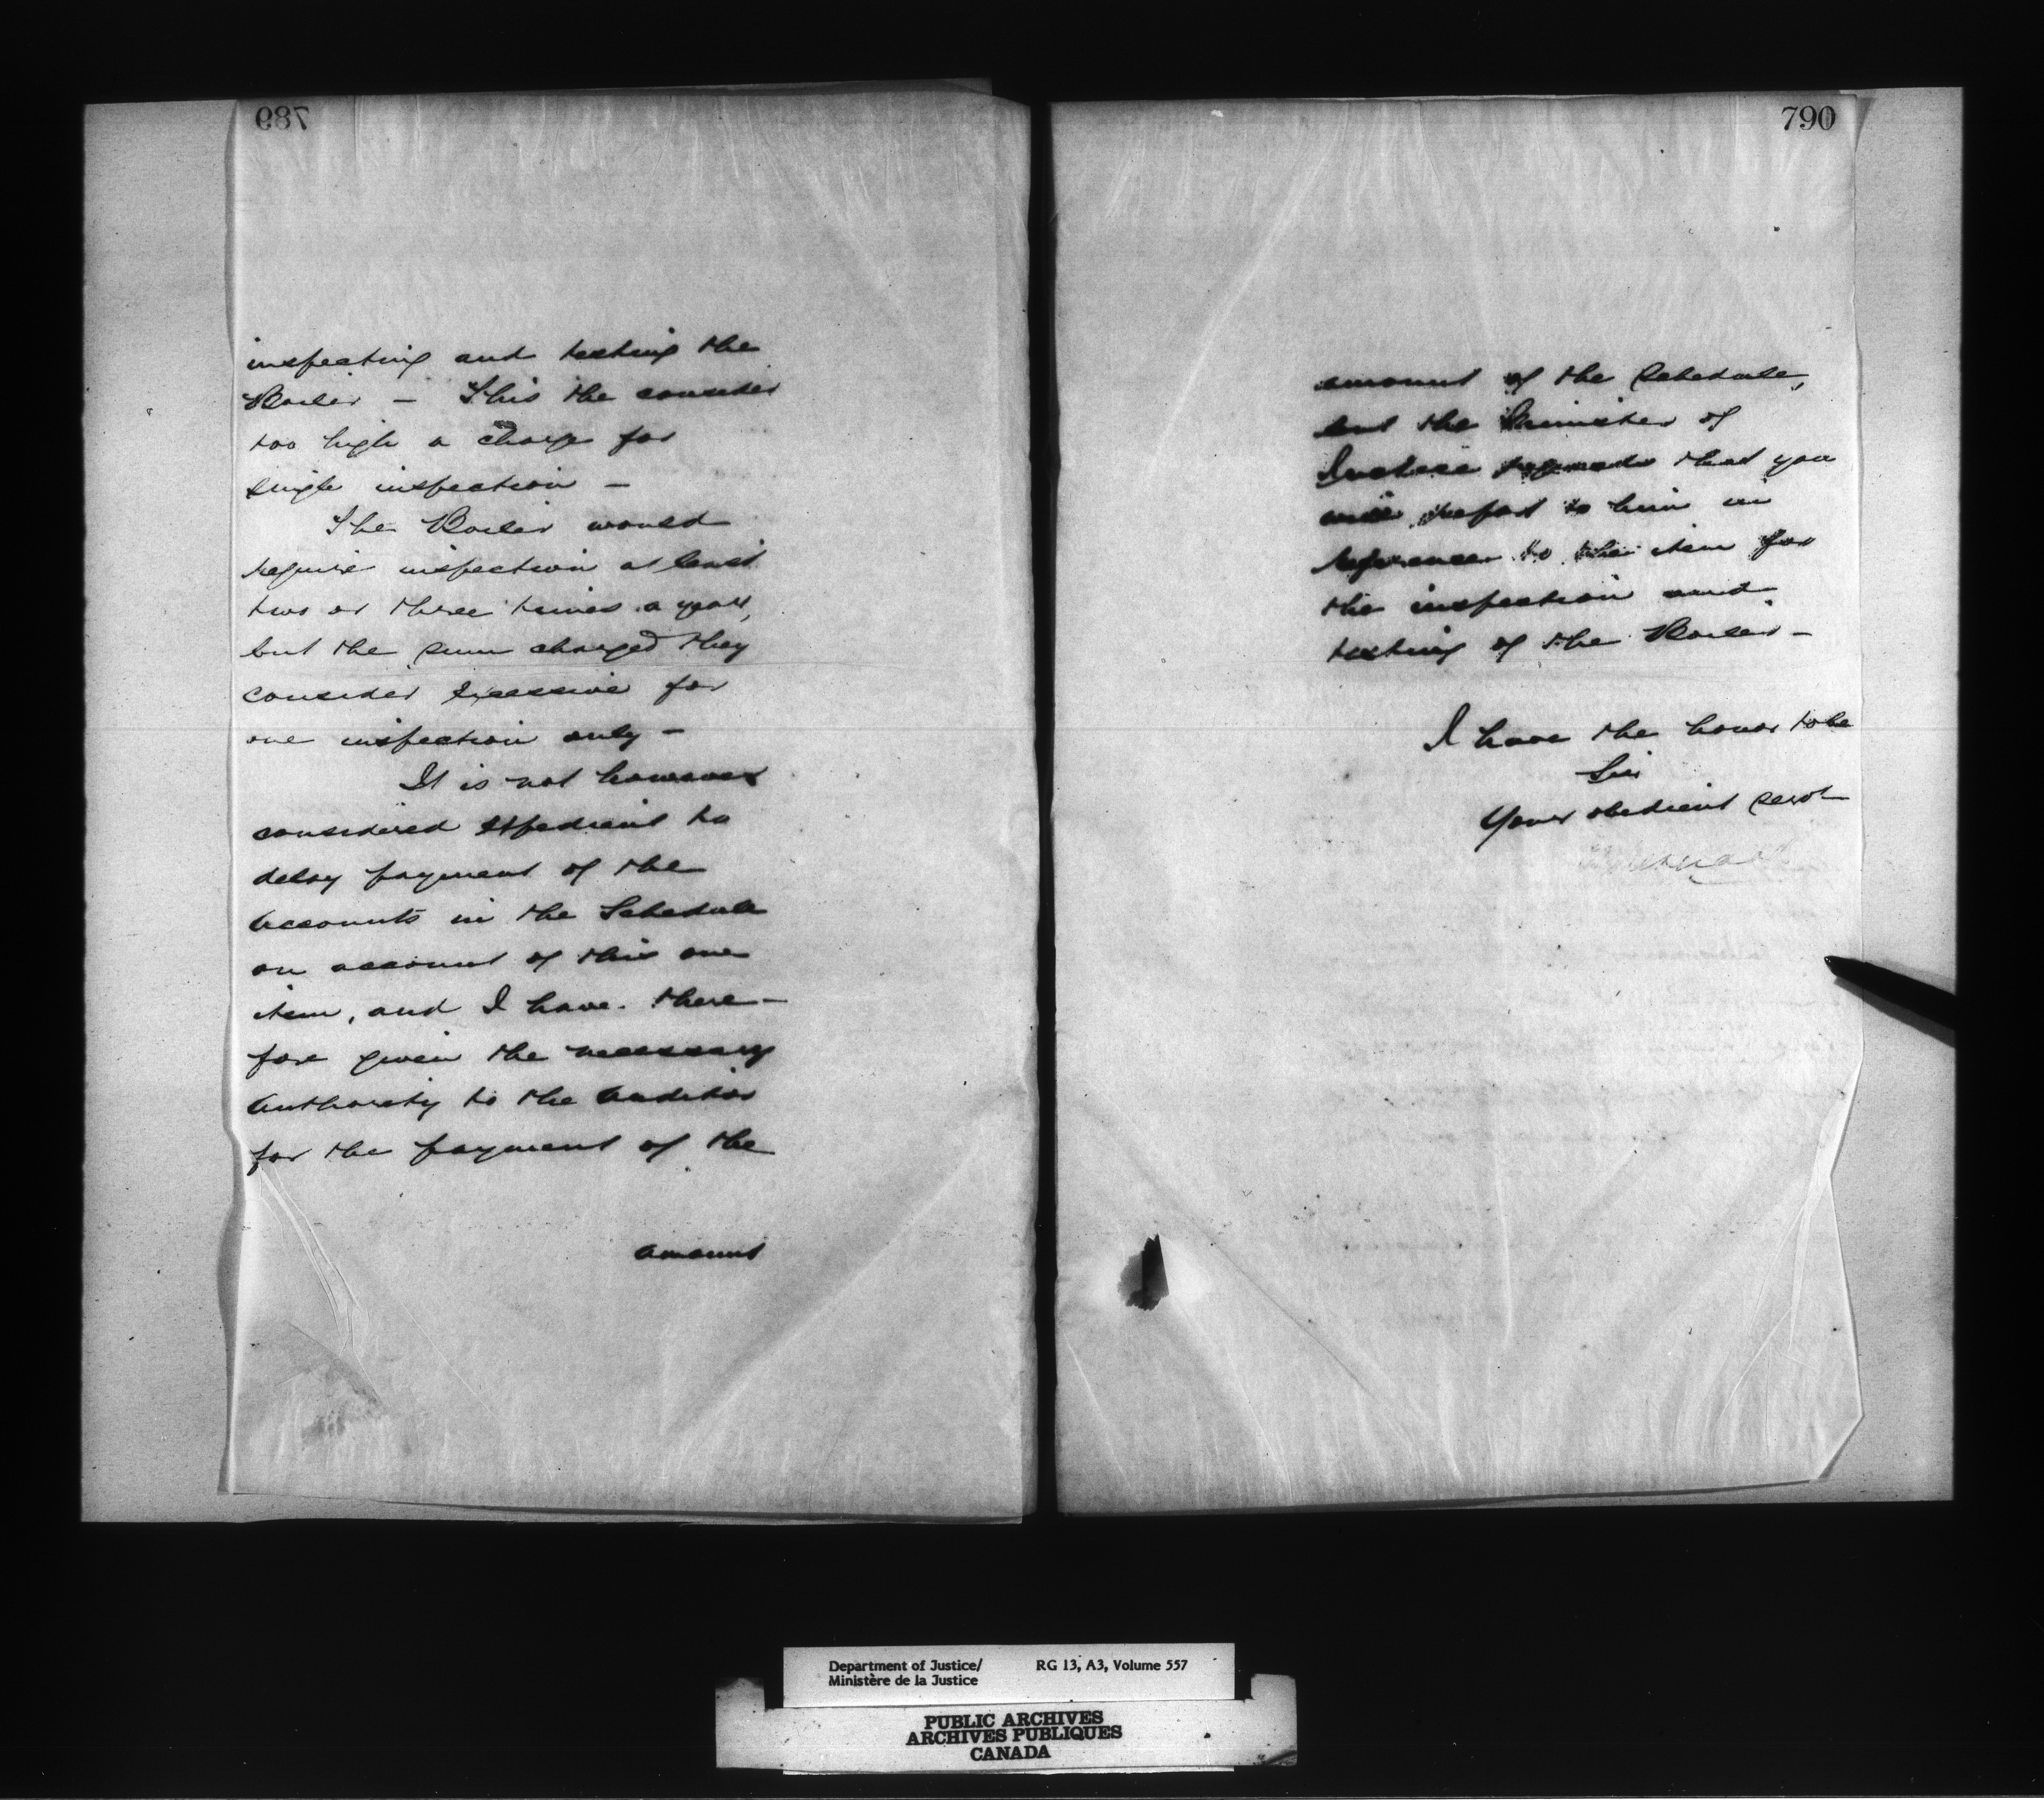 789
inspecting and testing the
Boiler - This the consider
too high a charge for
single inspection -
The Boiler would
require inspection at least
two or three times a year,
but the sum charged they
consider excessive for
one inspection only -
It is not however
considered expedient to
delay payment of the
accounts in the Schedule
on account of this one
item, and I have there-
fore given the necessary
authority to the auditor
for the payment of the
amount
790
amount of the Schedule,
but the Minister of
Justice requests that you
will report to him in
reference to the item for
the inspection and
testing of the Boiler -
I have the honor to be
Sir
Your obedient servt
Department of Justice/ RG 13, A3, Volume 557
Ministère de la Justice
PUBLIC ARCHIVES
ARCHIVES PUBLIQUES
CANADA